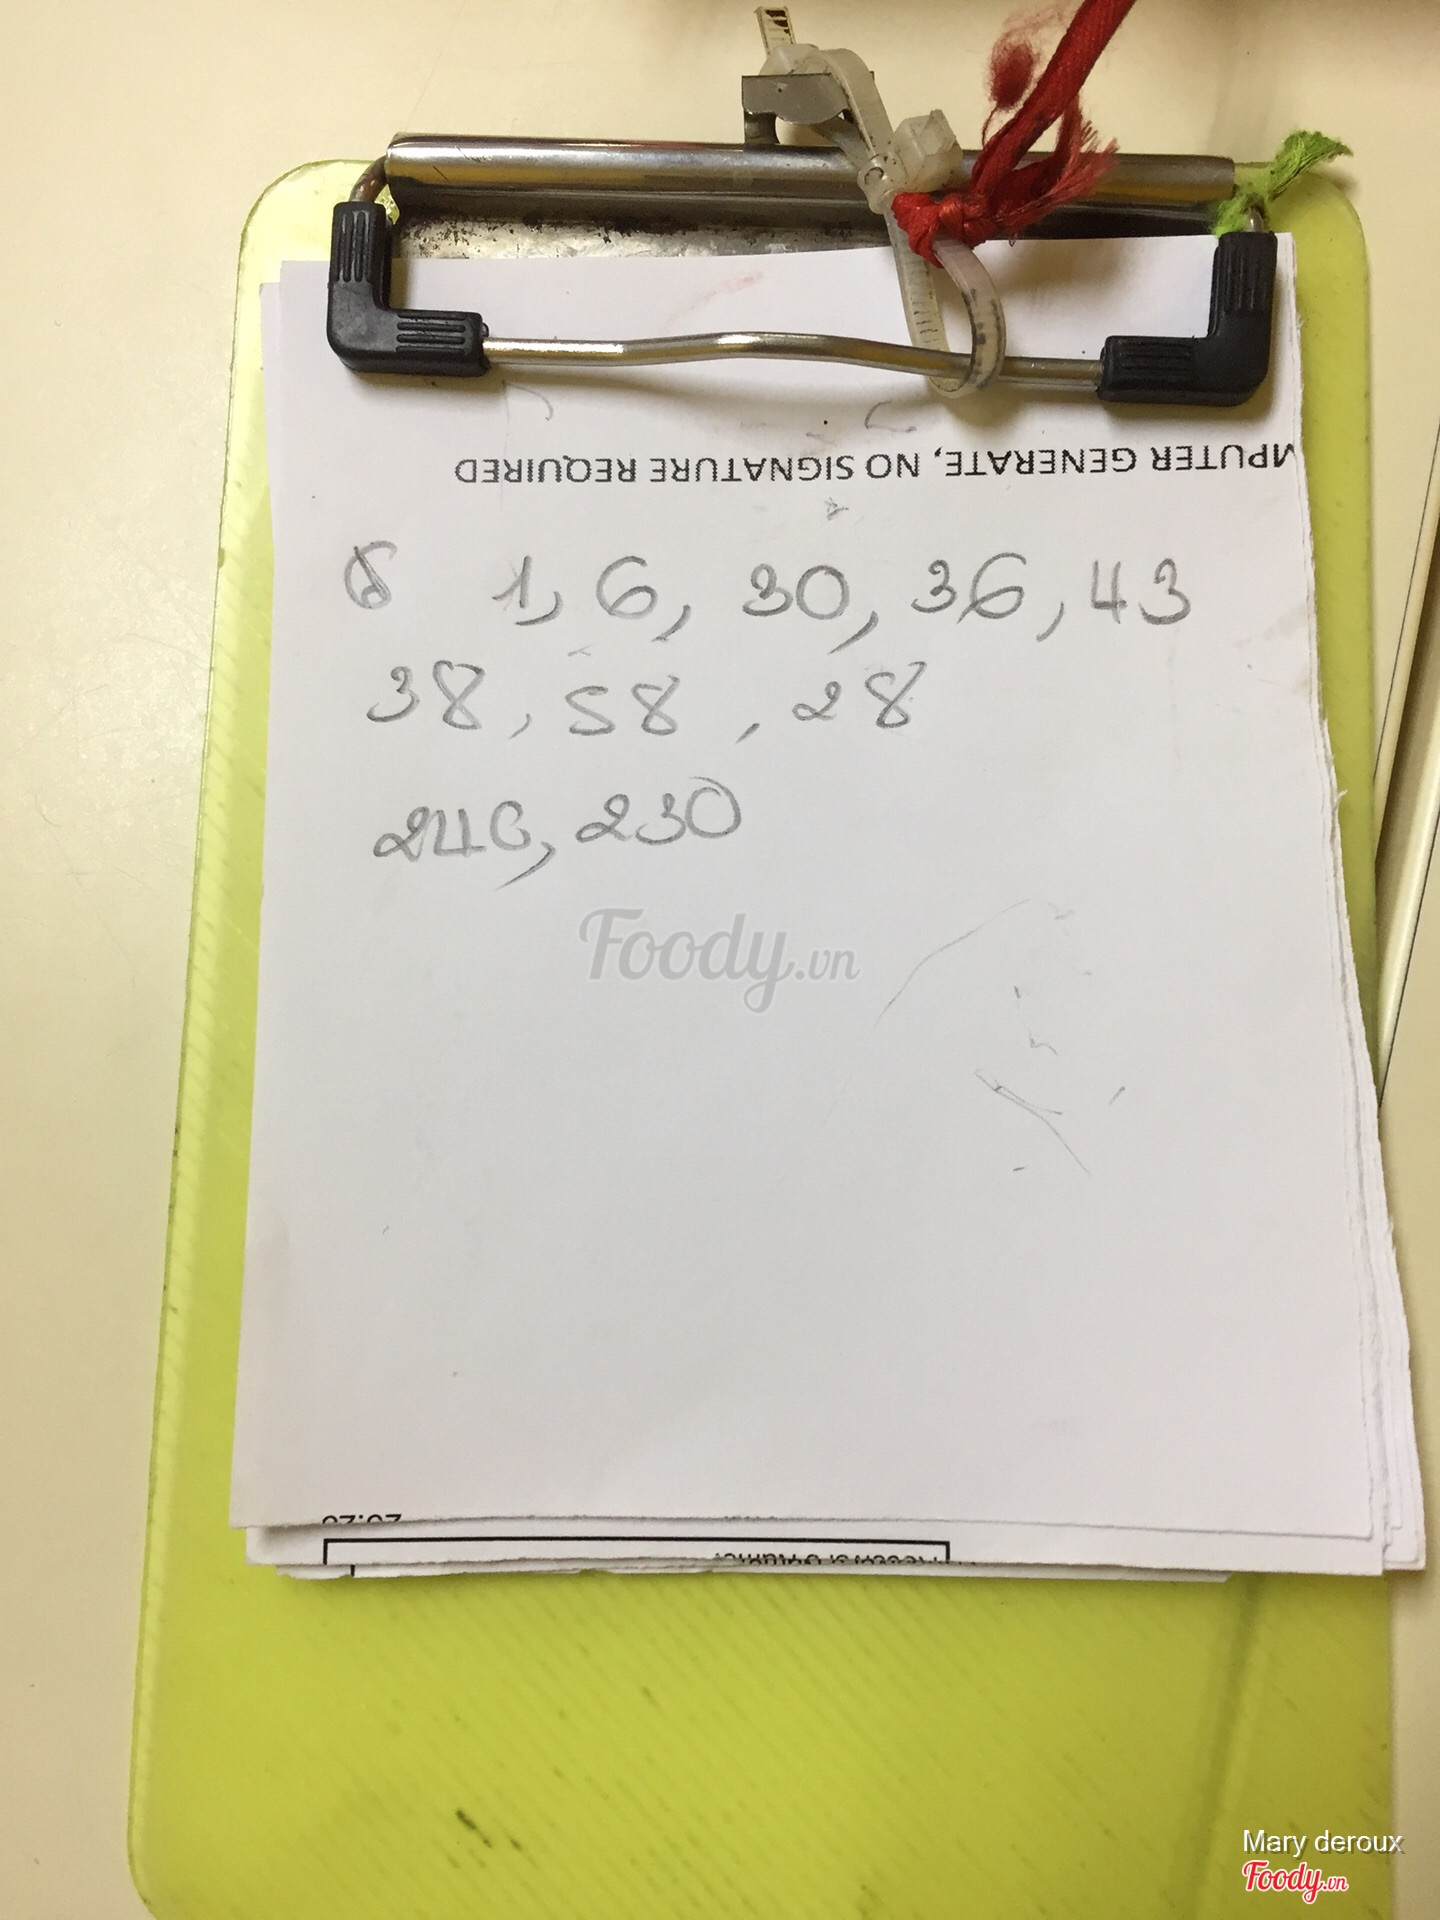 MPUTER GENERATE, NO SIGNATURE REQUIRED
1, 6, 30, 36, 43
38, 58, 28
240, 230
Foody.vn
Mary deroux
Foody.vn